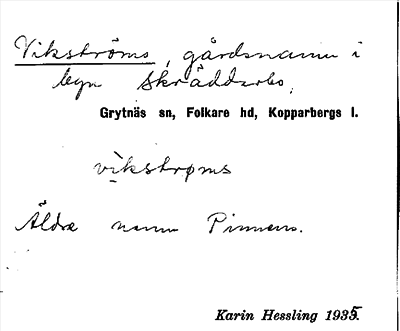 Vikströms, gårdsnamn i
byn Skräddarbo,
Grytnäs sn, Folkare hd, Kopparbergs l.
vìkstrøms
Äldre namn Pinnens.
Karin Hessling 1935.